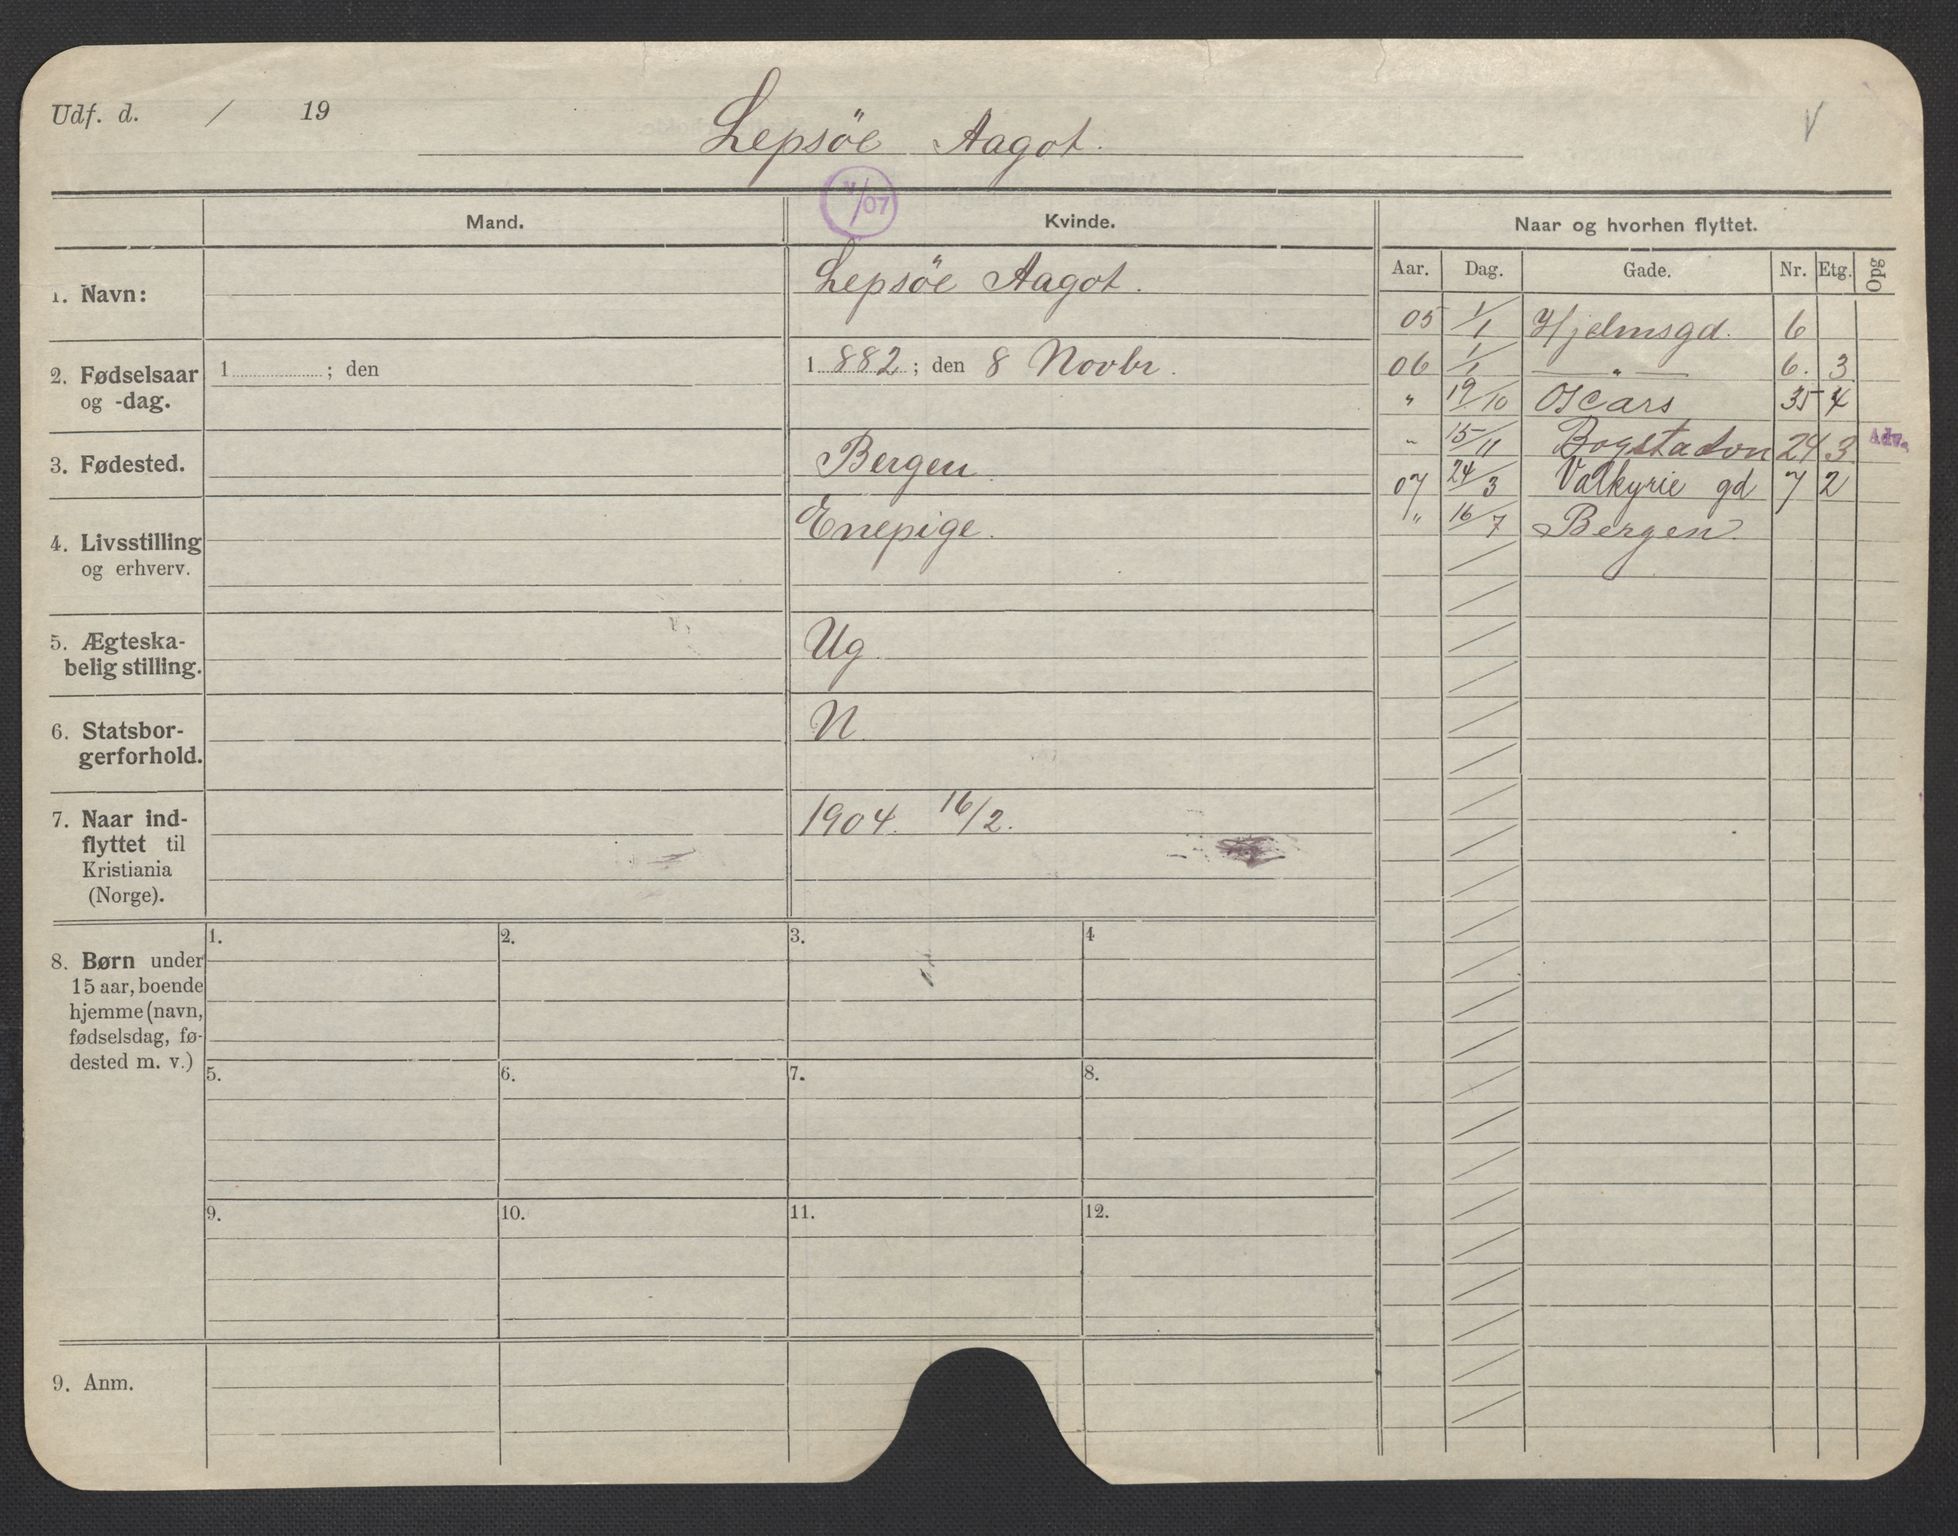 Udf. d. / 19
Lepsöe Aagot.
V
V/07
Mand.
Kvinde.
Naar og hvorhen flyttet.
Aar. Dag. Gade. Nr. Etg. Opg
1. Navn:
Lepsöe Aagot.
2. Fødselsaar og -dag.
1 ; den
1 882 ; den 8 Novbr.
3. Fødested.
Bergen
4. Livsstilling og erhverv.
Enepige.
5. Ægteska-
belig stilling.
Ug
6. Statsbor-
gerforhold.
N
7. Naar ind-
flyttet til
Kristiania
(Norge).
1904. 16/2.
8. Børn under
15 aar, boende
hjemme (navn,
fødselsdag, fø-
dested m. v.)
1. 2. 3. 4
5. 6. 7. 8.
9. 10. 11. 12.
9. Anm.
05 1/1 Hjelmsgd. 6
06 1/1 — " — 6. 3
" 19/10 Oscars 35 4
" 15/11 Bogstadvn 24 3 Adv.
07 24/3 Valkyrie gd 7 2
" 16/7 Bergen.